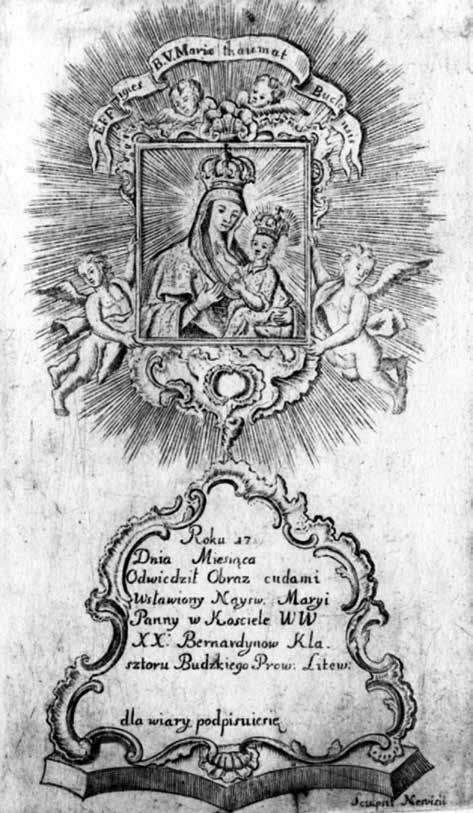 EFFigies B.V. Mariæ thaumat Budensis
Roku 17
Dnia Miesiąca
Odwiedził Obraz cudami
Wsławiony Nayśw. Maryi
Panny w Kosciele WW
XX. Bernardynow Kla-
sztoru Budzkiego Prow: Litew:
dla wiary podpisuiesię
Sculpsit